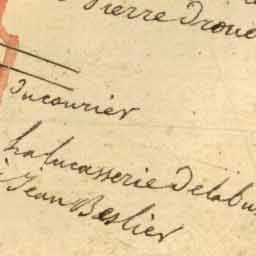 Pierre Droue
Ducourier
La lucasserie Delabu
Jean Beslier